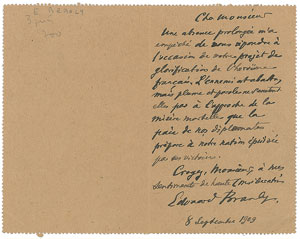 Cher monsieur
Une absence prolongée m'a
empêché de vous répondre à
l'occasion de votre projet de
glorification de l'héroïsme
français. L'ennemi est abattu,
mais plume et parole ne
elles pas à l'approche de la
misère mortelle que la
paix de nos diplomates
prépare à notre nation épuisée
par sa victoire.
Croyez, Monsieur, à mes
sentiments de haute considération
Edouard
8 Septembre 1919